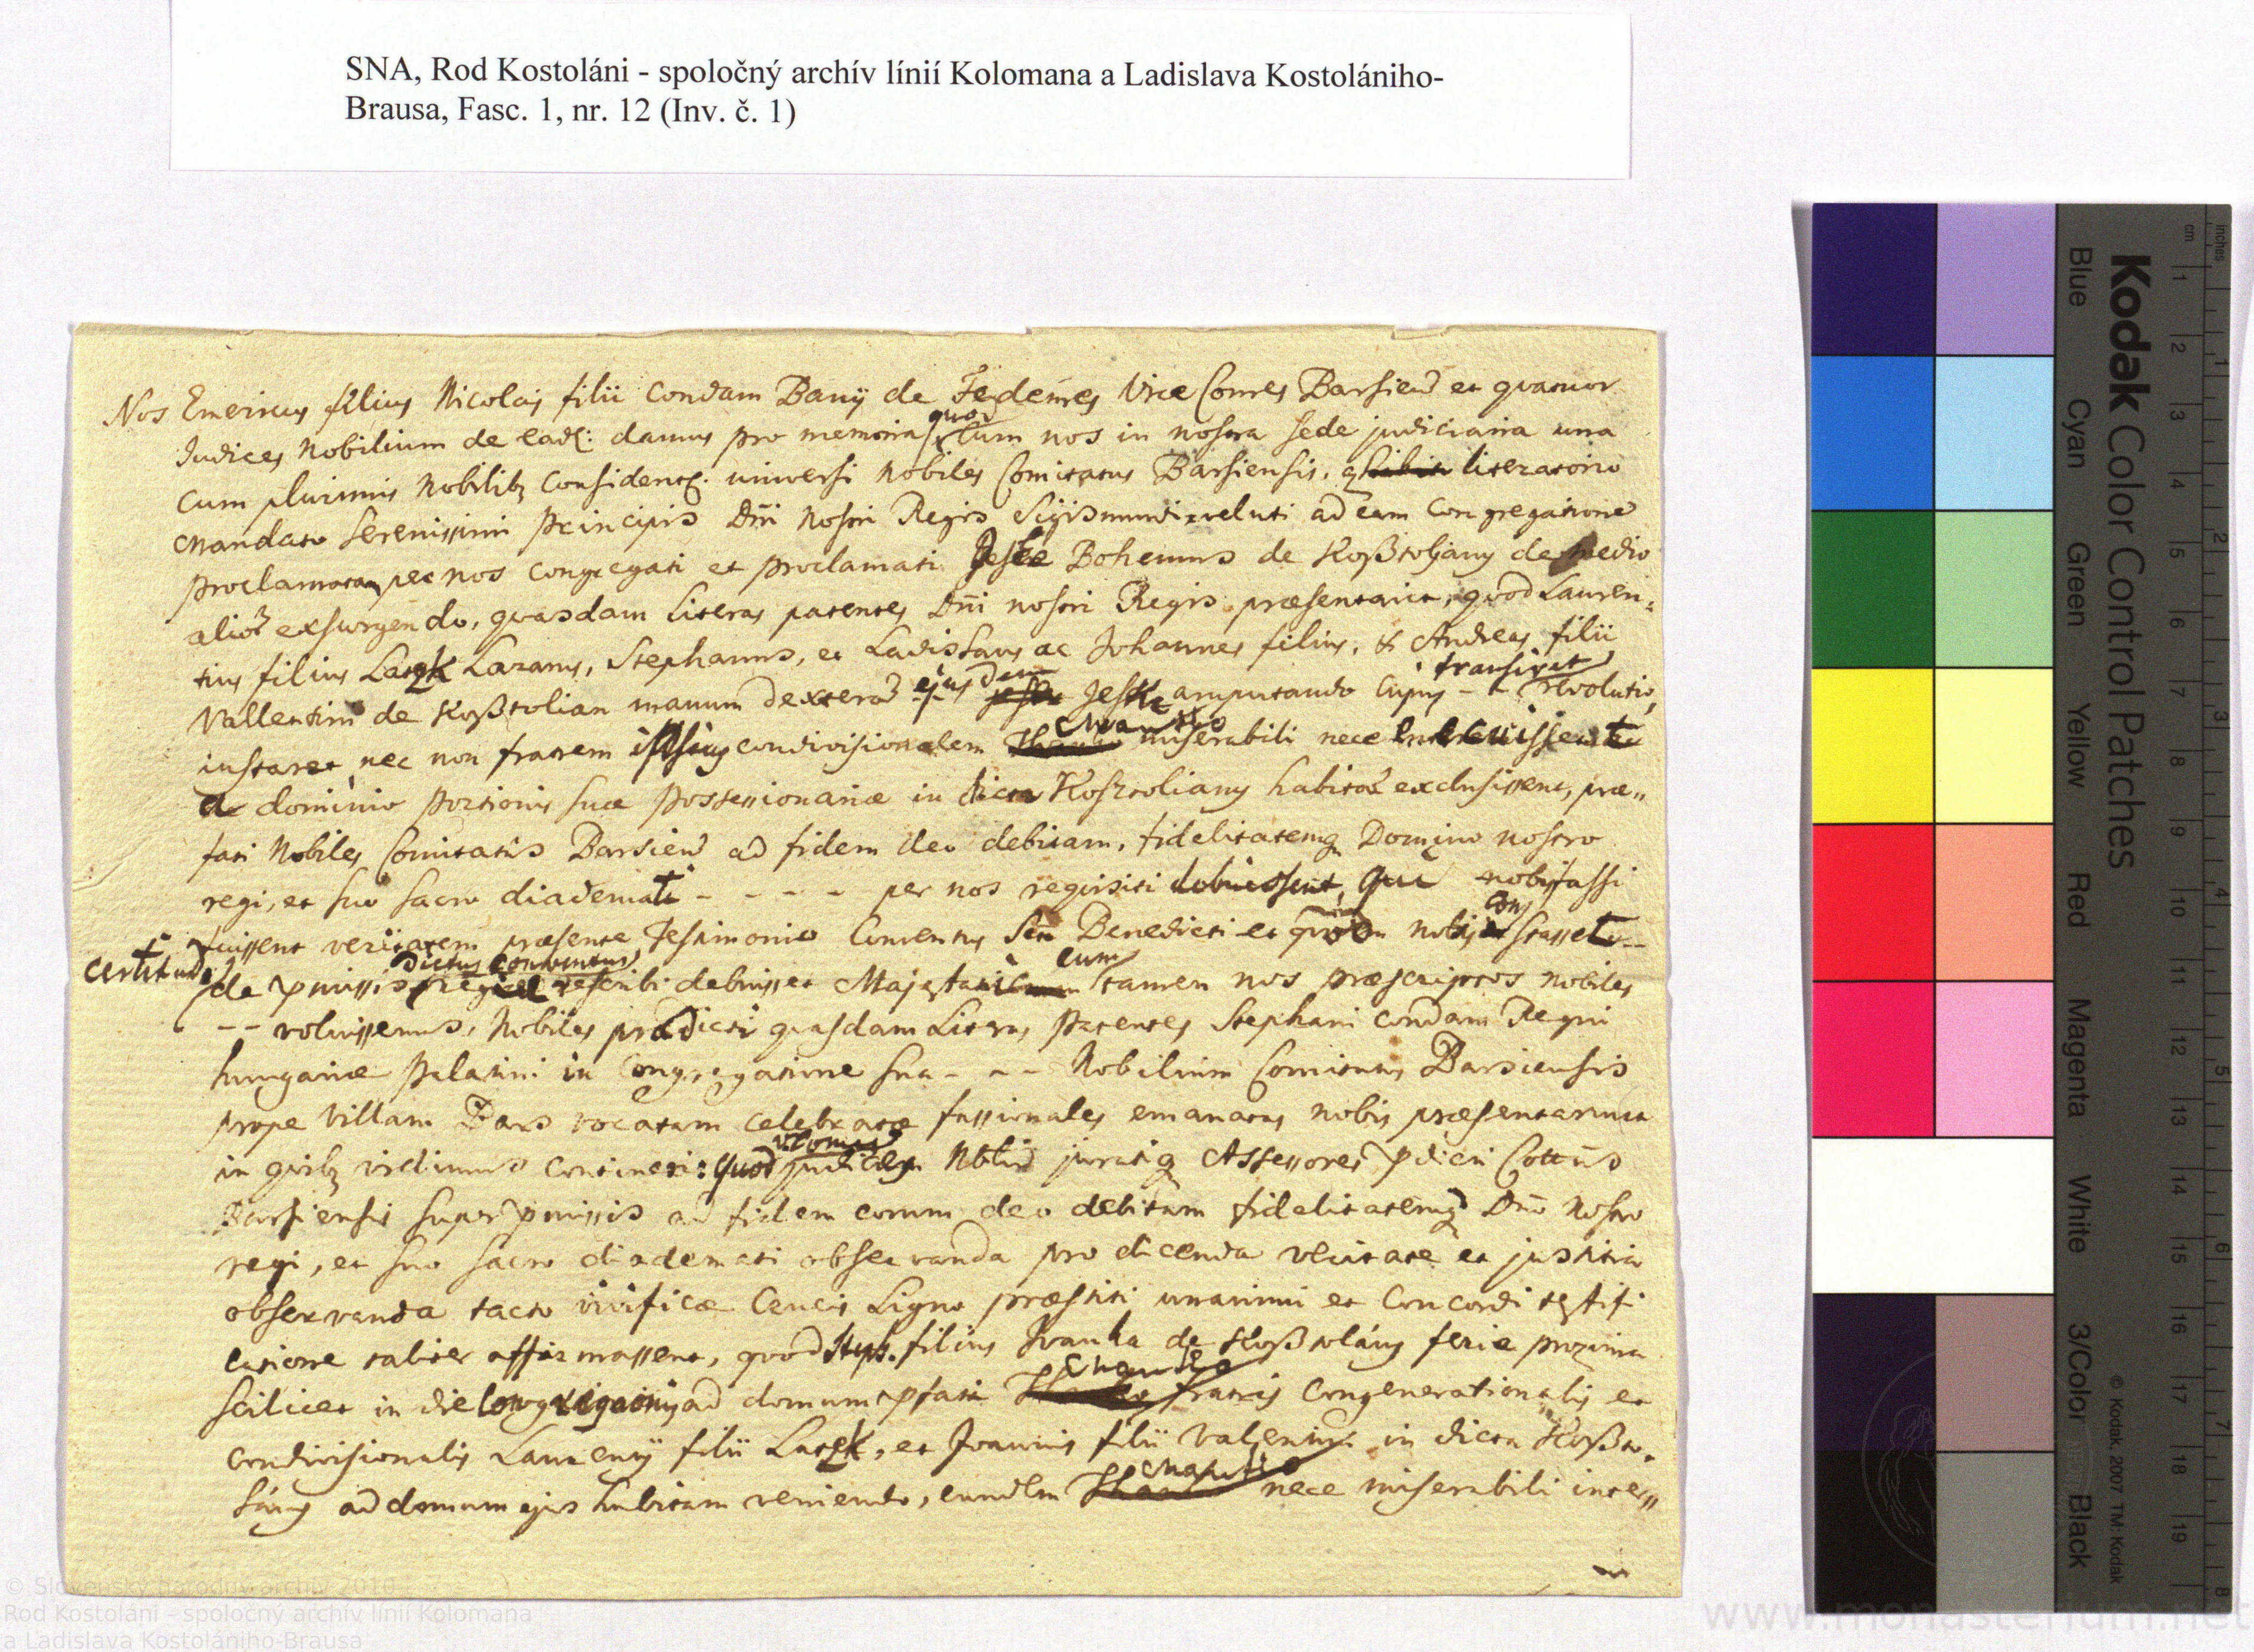 SNA, Rod Kostoláni - spoločný archív línií Kolomana a Ladislava Kostolániho-
Brausa, Fasc. 1, nr. 12 (Inv. č. 1)
Nos Emericus filius Nicolaj filii Condam Banÿ de Fedemes Vice Comes Barsien et quatuor
Judices Nobilium de ead: damus pro memoria quod Cum nos in nostra sede judiciaria una
Cum plurimis Nobilib Considentes universi Nobiles Comitatus Barsiensis, literatorio
Mandato Serenissimi Principis Dni Nostri Regis Sigismundi veluti ad eam Congregatione
proclamatam per nos Congregati et proclamati Jeske Bohemus de Koßtoljany de medio
alior exsurgendo, quasdam Literas patentes Dni nostri Regis præsentavit, quod Lauren=
tius filius Latzk Lazarus, Stephanus, et Ladislaus ac Johannes filius, & Andreas filii
Vallentini de Koßtolian manum dextera ejusdem Jeske amputando Cujus - - transivit revolutio,
instaret nec non fratrem ipsius condivisionalem Chanko miserabili nece
a dominio Portionis suæ Possessionariæ in dicta Koßtoliany habitas exclusissent, præ=
fati Nobiles Comitatus Barsien ad fidem deo debitam, fidelitatemq Domino nostro
regi, et suo sacro diademati - - - - per nos requisiti debuissent, qui nobis fassi
fuissent veritatem præsente Testimonio Conventus Sti Benedicti et nobis constasset - -
certitudo de pmissis dictus conventus rescribi debuisset Majestati cum tamen nos præscriptos nobiles
- - voluissemus, Nobiles prædicti quasdam Literas Patentes Stephani condam Regni
hungariæ Palatini in Congregatione sua - - - Nobilium Comitatus Barsiensis
prope Villam Bars vocatam celebrata fassionales emanatas nobis præsentarunt
in quib vidimus contineri: quod Nbliu juratiq Assessores pdicti Cottus
Barsiensis super pmissis ad fidem eorum deo debitam fidelitatemq Dno Nostro
regi, et suo sacro diademati observanda pro dicenda veritate et justitia
observanda tacto vivificæ Crucis Ligno præstiti unanimi et Concordi testifi
catione taliter affirmassent, quod Steph. filius Ivanka de Koßtolány feria proxima
scilicet in die Congregationis ad domum pfati Chanko fratris Congenerationalis et
condivisionalis Laurentÿ filii Latzk, et Joannis filii Valentini in dicta Koßto=
lány ad domum ejus habitam veniendo, eundem Chanko nece miserabili inte=
Kodak Color Control Patches
Blue Cyan Green Yellow Red Magenta White 3/Color Black
© Kodak, 2007 TM: Kodak
inches 1 2 3 4 5 6 7 8
cm 1 2 3 4 5 6 7 8 9 10 11 12 13 14 15 16 17 18 19
© Slovenský národný archív 2010
Rod Kostoláni - spoločný archív línií Kolomana
a Ladislava Kostolániho-Brausa
www.monasterium.net